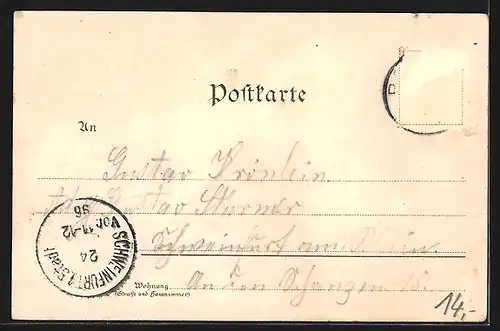 Postkarte
An
Gustav Kröhlein
Gustav Stürmer
Schweinfurt am Main.
Wohnung
(Straße und Hausnummer)
An den Schanzen 15.
SCHWEINFURT 1. Stadt
24
Vor. 11-12
96
14,-